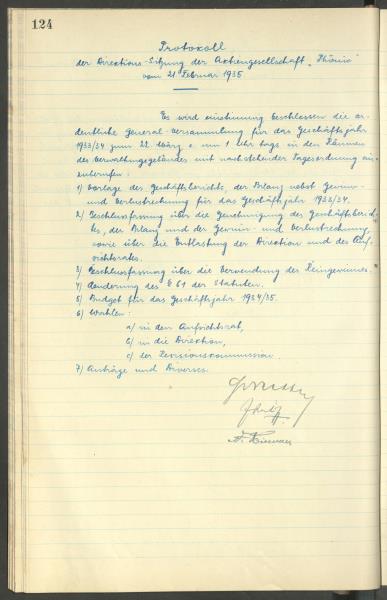 124
Protokoll
der Direktions-Sitzung der Aktiengesellschaft "Phönix"
vom 21 Februar 1935
Es wird einstimmig beschlossen die or-
dentliche General-Versammlung für das Geschäftsjahr
1933/34 zum 22. März c. um 1 Uhr tags in den Räumen
des Verwaltungsgebäudes mit nachstehender Tagesordnung ein-
zuberufen:
1) Vorlage des Geschäftsberichts, der Bilanz nebst Gewinn-
und Verlustrechnung für das Geschäftsjahr 1933/34.
2) Beschlussfassung über die Genehmigung des Geschäftsberich-
tes, der Bilanz und der Gewinn- und Verlustrechnung,
sowie über die Entlastung der Direktion und des Auf-
sichtsrates.
3) Beschlussfassung über die Verwendung des Reingewinnes.
4) Änderung des § 61 der Statuten.
5) Budget für das Geschäftsjahr 1934/35.
6) Wahlen:
a) in den Aufsichtsrat,
b) in die Direktion,
c) der Revisionskommission.
7) Anträge und Diverses.